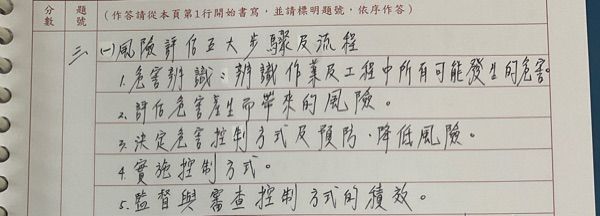 分數 題號 (作答請從本頁第1行開始書寫，並請標明題號，依序作答)
三、(一)風險評估五大步驟及流程
1.危害辨識：辨識作業及工程中所有可能發生的危害。
2.評估危害產生而帶來的風險。
3.決定危害控制方式及預防、降低風險。
4.實施控制方式。
5.監督與審查控制方式的績效。